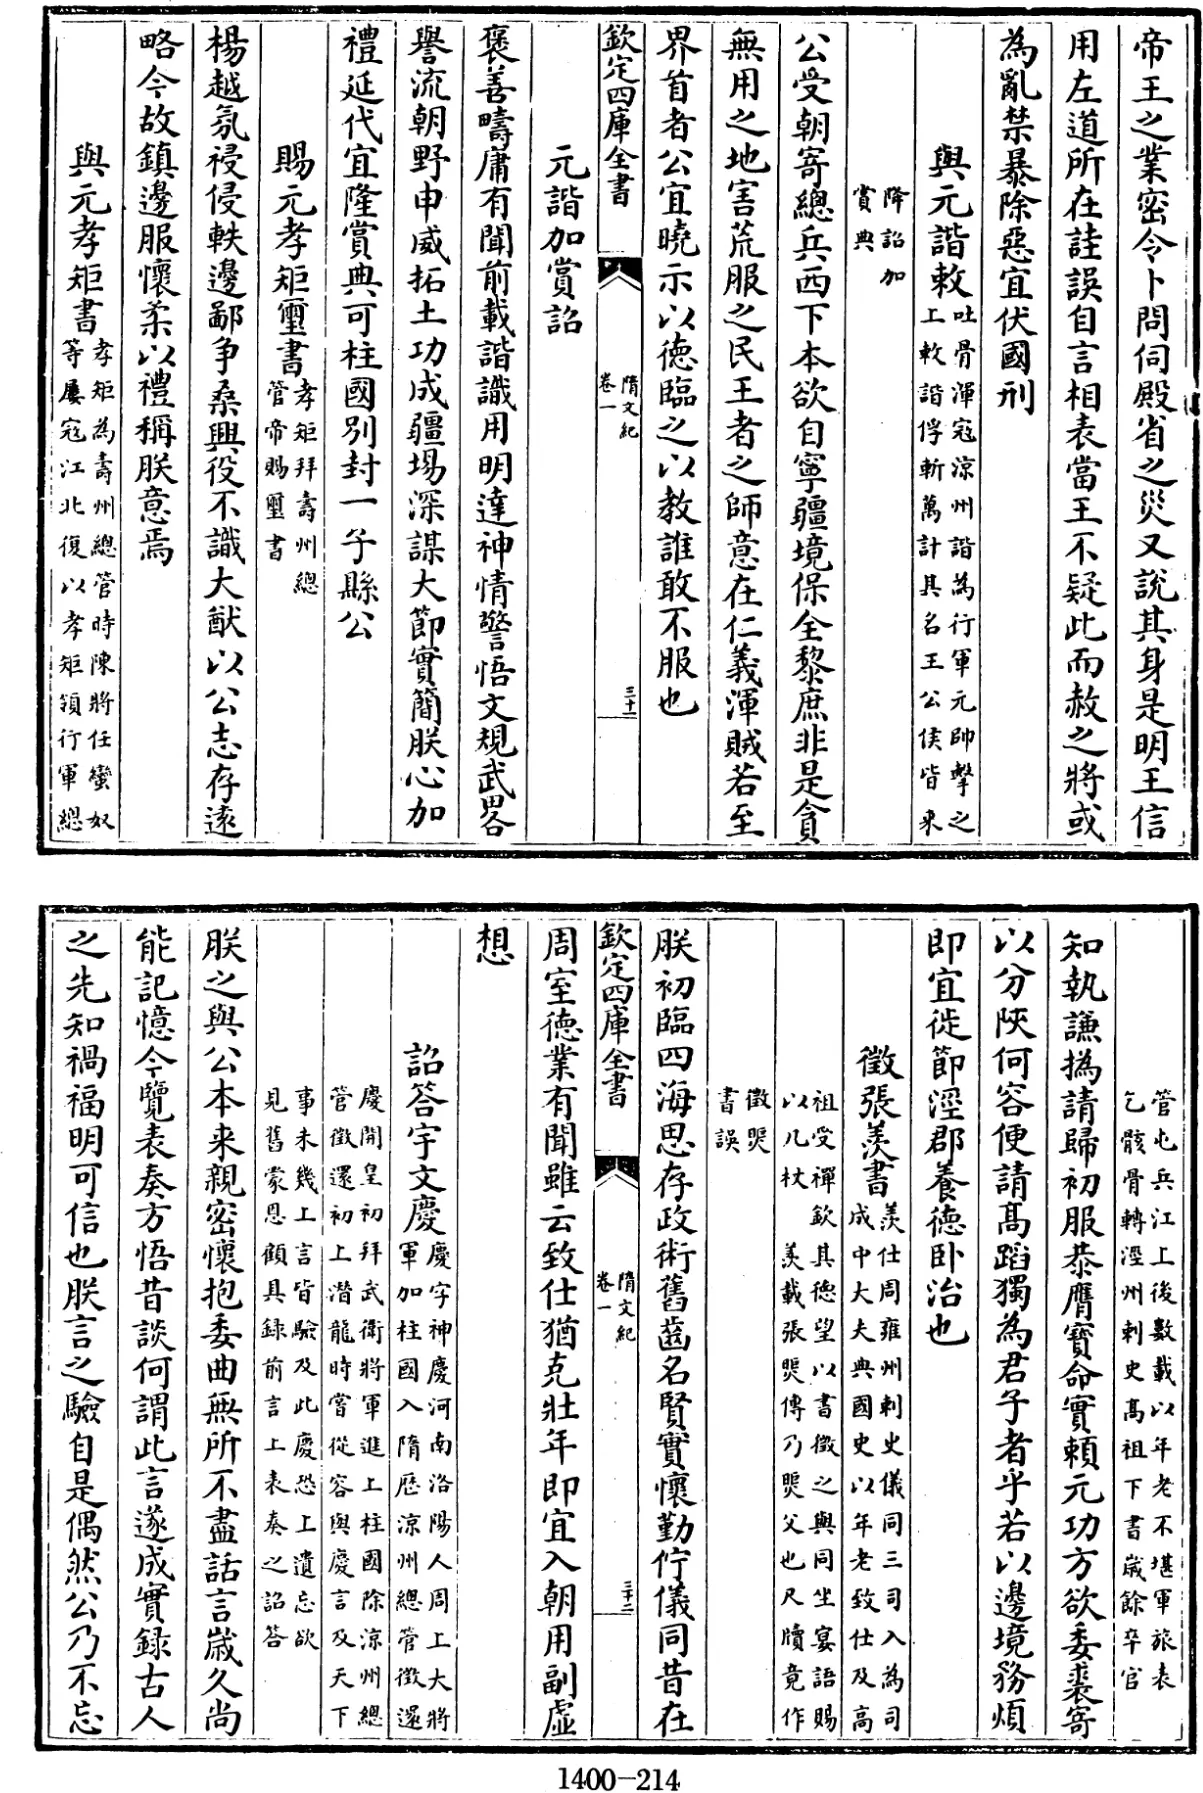 帝王之業密令卜問伺殿省之災又說其身是明王信
用左道所在詿誤自言相表當王不疑此而赦之將或
為亂禁暴除惡宜伏國刑
與元諧敕吐骨渾寇涼州諧為行軍元帥擊之
上敕諧俘斬萬計其名王公侯皆來
降詔加
賞典
公受朝寄總兵西下本欲自寧疆境保全黎庶非是貪
無用之地害荒服之民王者之師意在仁義渾賊若至
界首者公宜曉示以德臨之以教誰敢不服也
欽定四庫全書
隋文紀
卷一
三十一
元諧加賞詔
褒善疇庸有聞前載諧識用明達神情警悟文規武畧
譽流朝野申威拓土功成疆場深謀大節實簡朕心加
禮延代宜隆賞典可柱國別封一子縣公
賜元孝矩璽書孝矩拜壽州總
管帝賜璽書
楊越氛祲侵軼邊鄙争桑興役不識大猷以公志存遠
略今故鎮邊服懷柔以禮稱朕意焉
與元孝矩書孝矩為壽州總管時陳將任蠻奴
等屢寇江北復以孝矩領行軍總
管屯兵江上後數載以年老不堪軍旅表
乞骸骨轉涇州刺史高祖下書歲餘卒官
知執謙撝請歸初服恭膺寶命實賴元功方欲委裘寄
以分陝何容便請高蹈獨為君子者乎若以邊境務煩
即宜徙節涇郡養德卧治也
徵張羨書羨仕周雍州刺史儀同三司入為司
成中大夫典國史以年老致仕及高
祖受禪欽其德望以書徵之與同坐宴語賜
以几杖　羨載張煚傳乃煚父也尺牘竟作
徵煚
書誤
朕初臨四海思存政術舊齒名賢實懷勤佇儀同昔在
欽定四庫全書
隋文紀
卷一
三十二
周室德業有聞雖云致仕猶克壯年即宜入朝用副虛
想
詔答宇文慶慶字神慶河南洛陽人周上大將
軍加柱國入隋歷涼州總管徵還
慶開皇初拜武衛將軍進上柱國除涼州總
管徵還初上潛龍時嘗從容與慶言及天下
事未幾上言皆驗及此慶恐上遺忘欲
見舊蒙恩顧具録前言上表奏之詔答
朕之與公本来親密懷抱委曲無所不盡話言歲久尚
能記憶今覽表奏方悟昔談何謂此言遂成實録古人
之先知禍福明可信也朕言之驗自是偶然公乃不忘
1400-214